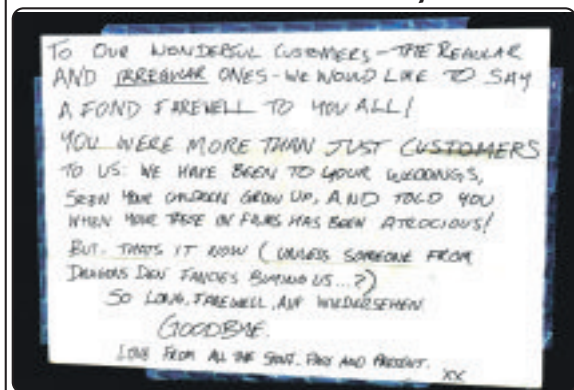 TO OUR WONDERFUL CUSTOMERS - THE REGULAR
AND IRREGULAR ONES - WE WOULD LIKE TO SAY
A FOND FAREWELL TO YOU ALL!
YOU WERE MORE THAN JUST CUSTOMERS
TO US: WE HAVE BEEN TO YOUR WEDDINGS,
SEEN YOUR CHILDREN GROW UP, AND TOLD YOU
WHEN YOUR TASTE IN FILMS HAS BEEN ATROCIOUS!
BUT. THATS IT NOW (UNLESS SOMEONE FROM
DRAGONS DEN FANCIES BUYING US...?)
SO LONG, FAREWELL, AUF WIEDERSEHEN
GOODBYE.
LOVE FROM ALL THE STAFF. PAST AND PRESENT.
XX